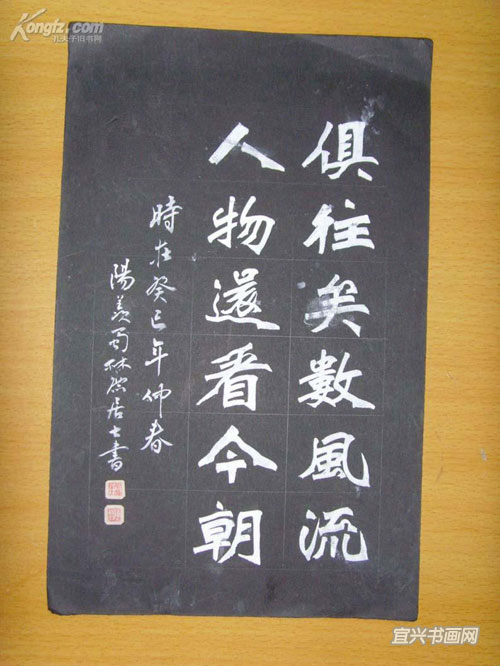 Kongfz.com
孔夫子旧书网
俱往矣數風流
人物還看今朝
時在癸巳年仲春
陽羨蜀林居士書
宜兴书画网